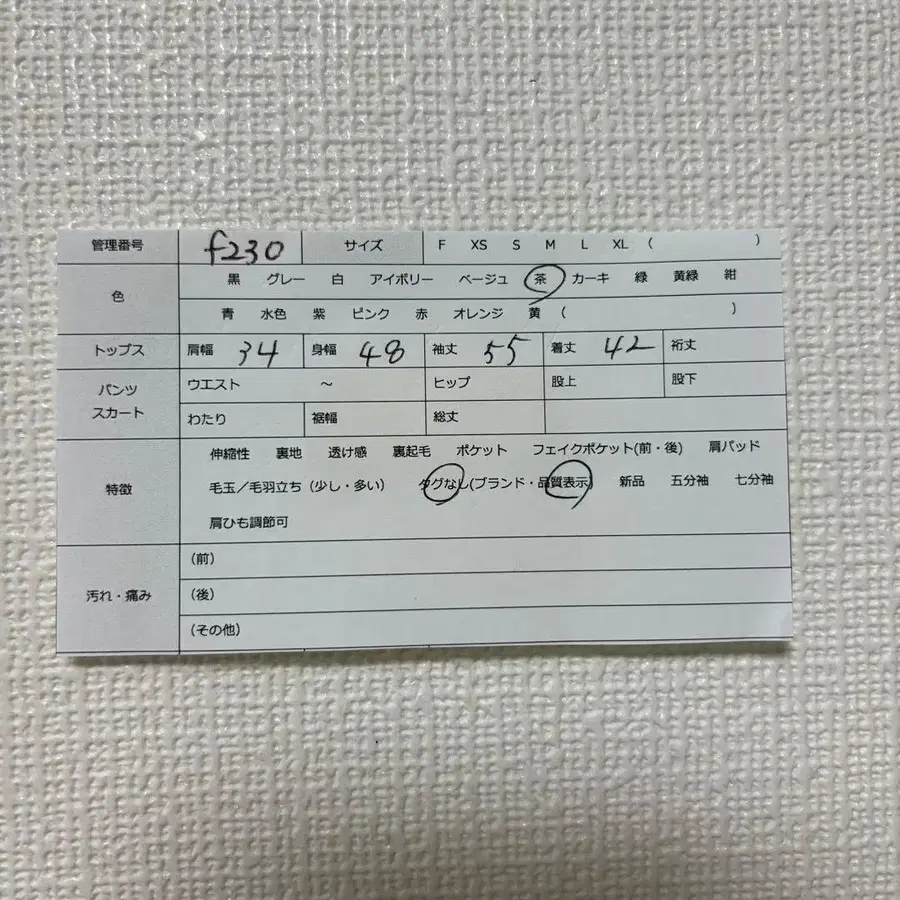 管理番号 f230 サイズ F XS S M L XL ( )
色 黒 グレー 白 アイボリー ベージュ 茶 カーキ 緑 黄緑 紺
青 水色 紫 ピンク 赤 オレンジ 黄 ( )
トップス 肩幅 34 身幅 48 袖丈 55 着丈 42 裄丈
パンツ スカート ウエスト ～ ヒップ 股上 股下
わたり 裾幅 総丈
特徴 伸縮性 裏地 透け感 裏起毛 ポケット フェイクポケット(前・後) 肩パッド
毛玉／毛羽立ち（少し・多い） タグなし(ブランド・品質表示) 新品 五分袖 七分袖
肩ひも調節可
汚れ・痛み （前）
（後）
（その他）